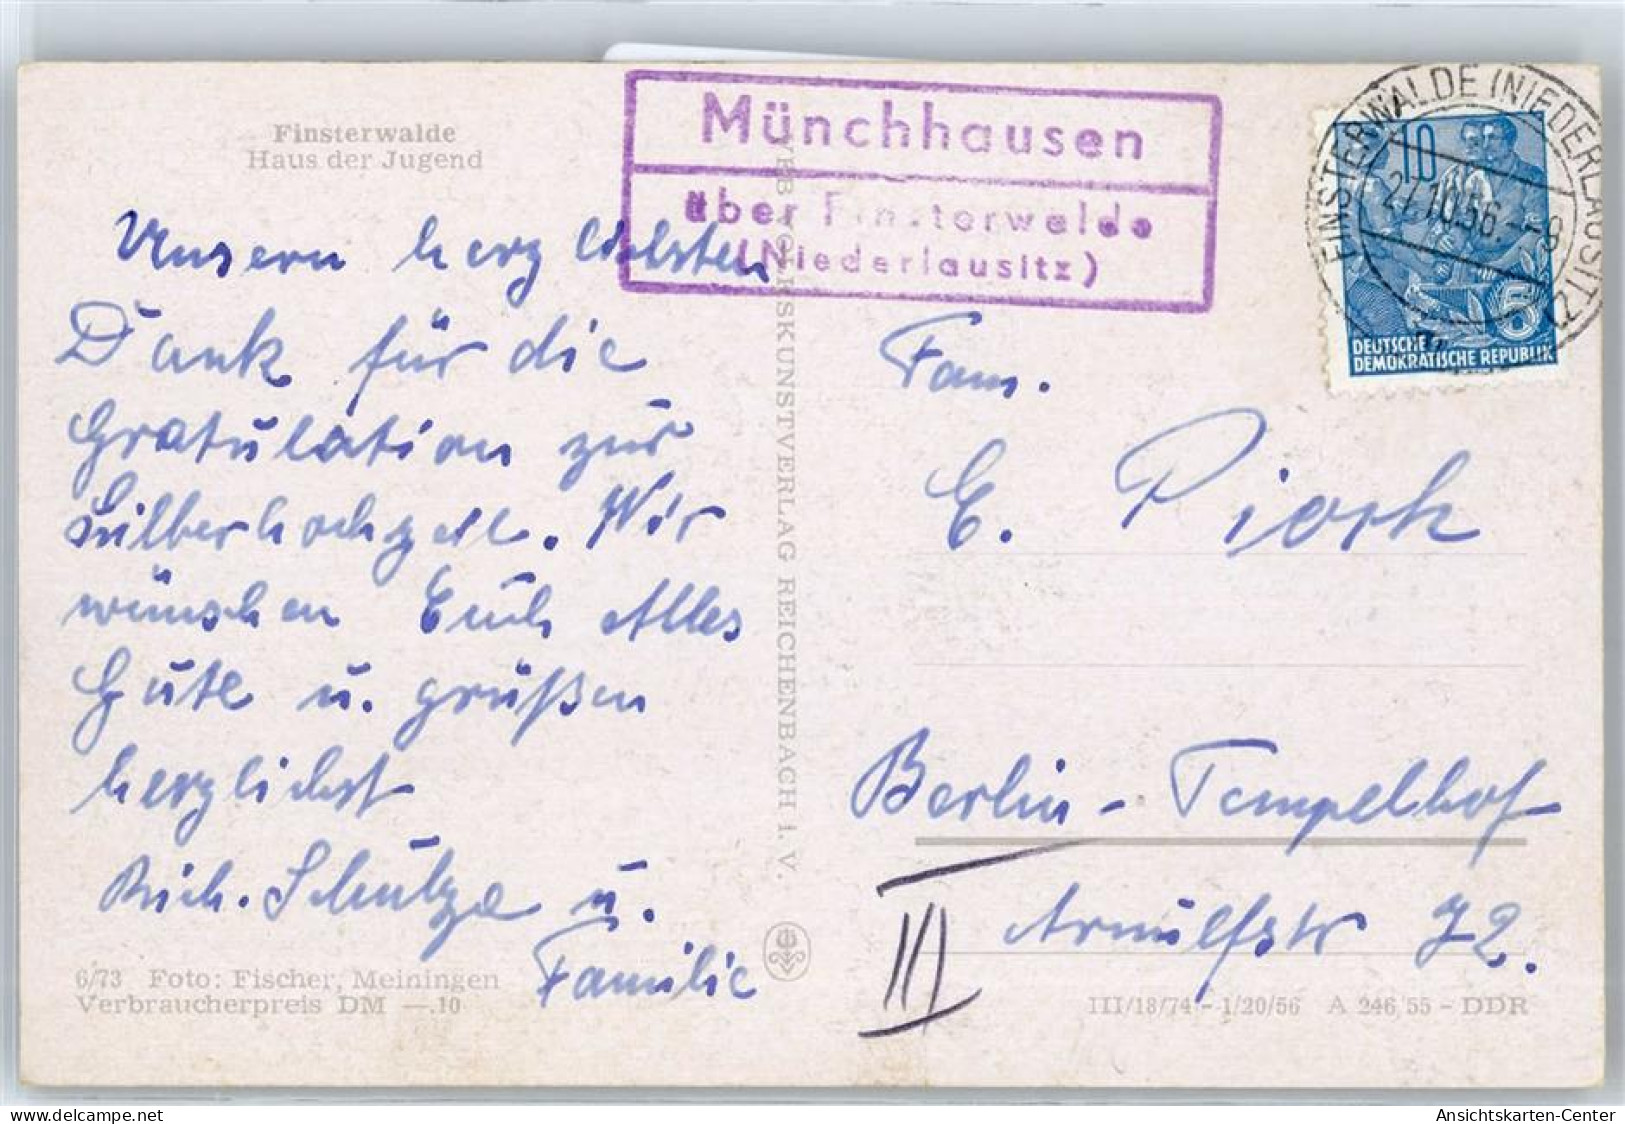 Finsterwalde
Haus der Jugend
Münchhausen
über Finsterwalde
(Niederlausitz)
FINSTERWALDE (NIEDERLAUSITZ)
27.10.56.--8
10
5
DEUTSCHE
DEMOKRATISCHE REPUBLIK
Unsern herzlichsten
Dank für die
Gratulation zur
Silberhochzeit. Wir
wünschen Euch Alles
Gute u. grüßen
herzlichst
Rich. Schulze u.
Familie
6/73 Foto: Fischer, Meiningen
Verbraucherpreis DM —.10
VEB VOLKSKUNSTVERLAG REICHENBACH I. V.
Fam.
E. Piork
Berlin - Tempelhof
Arnulfstr 72.
III
III/18/74 - 1/20/56 A 246/55 - DDR
Ansichtskarten-Center